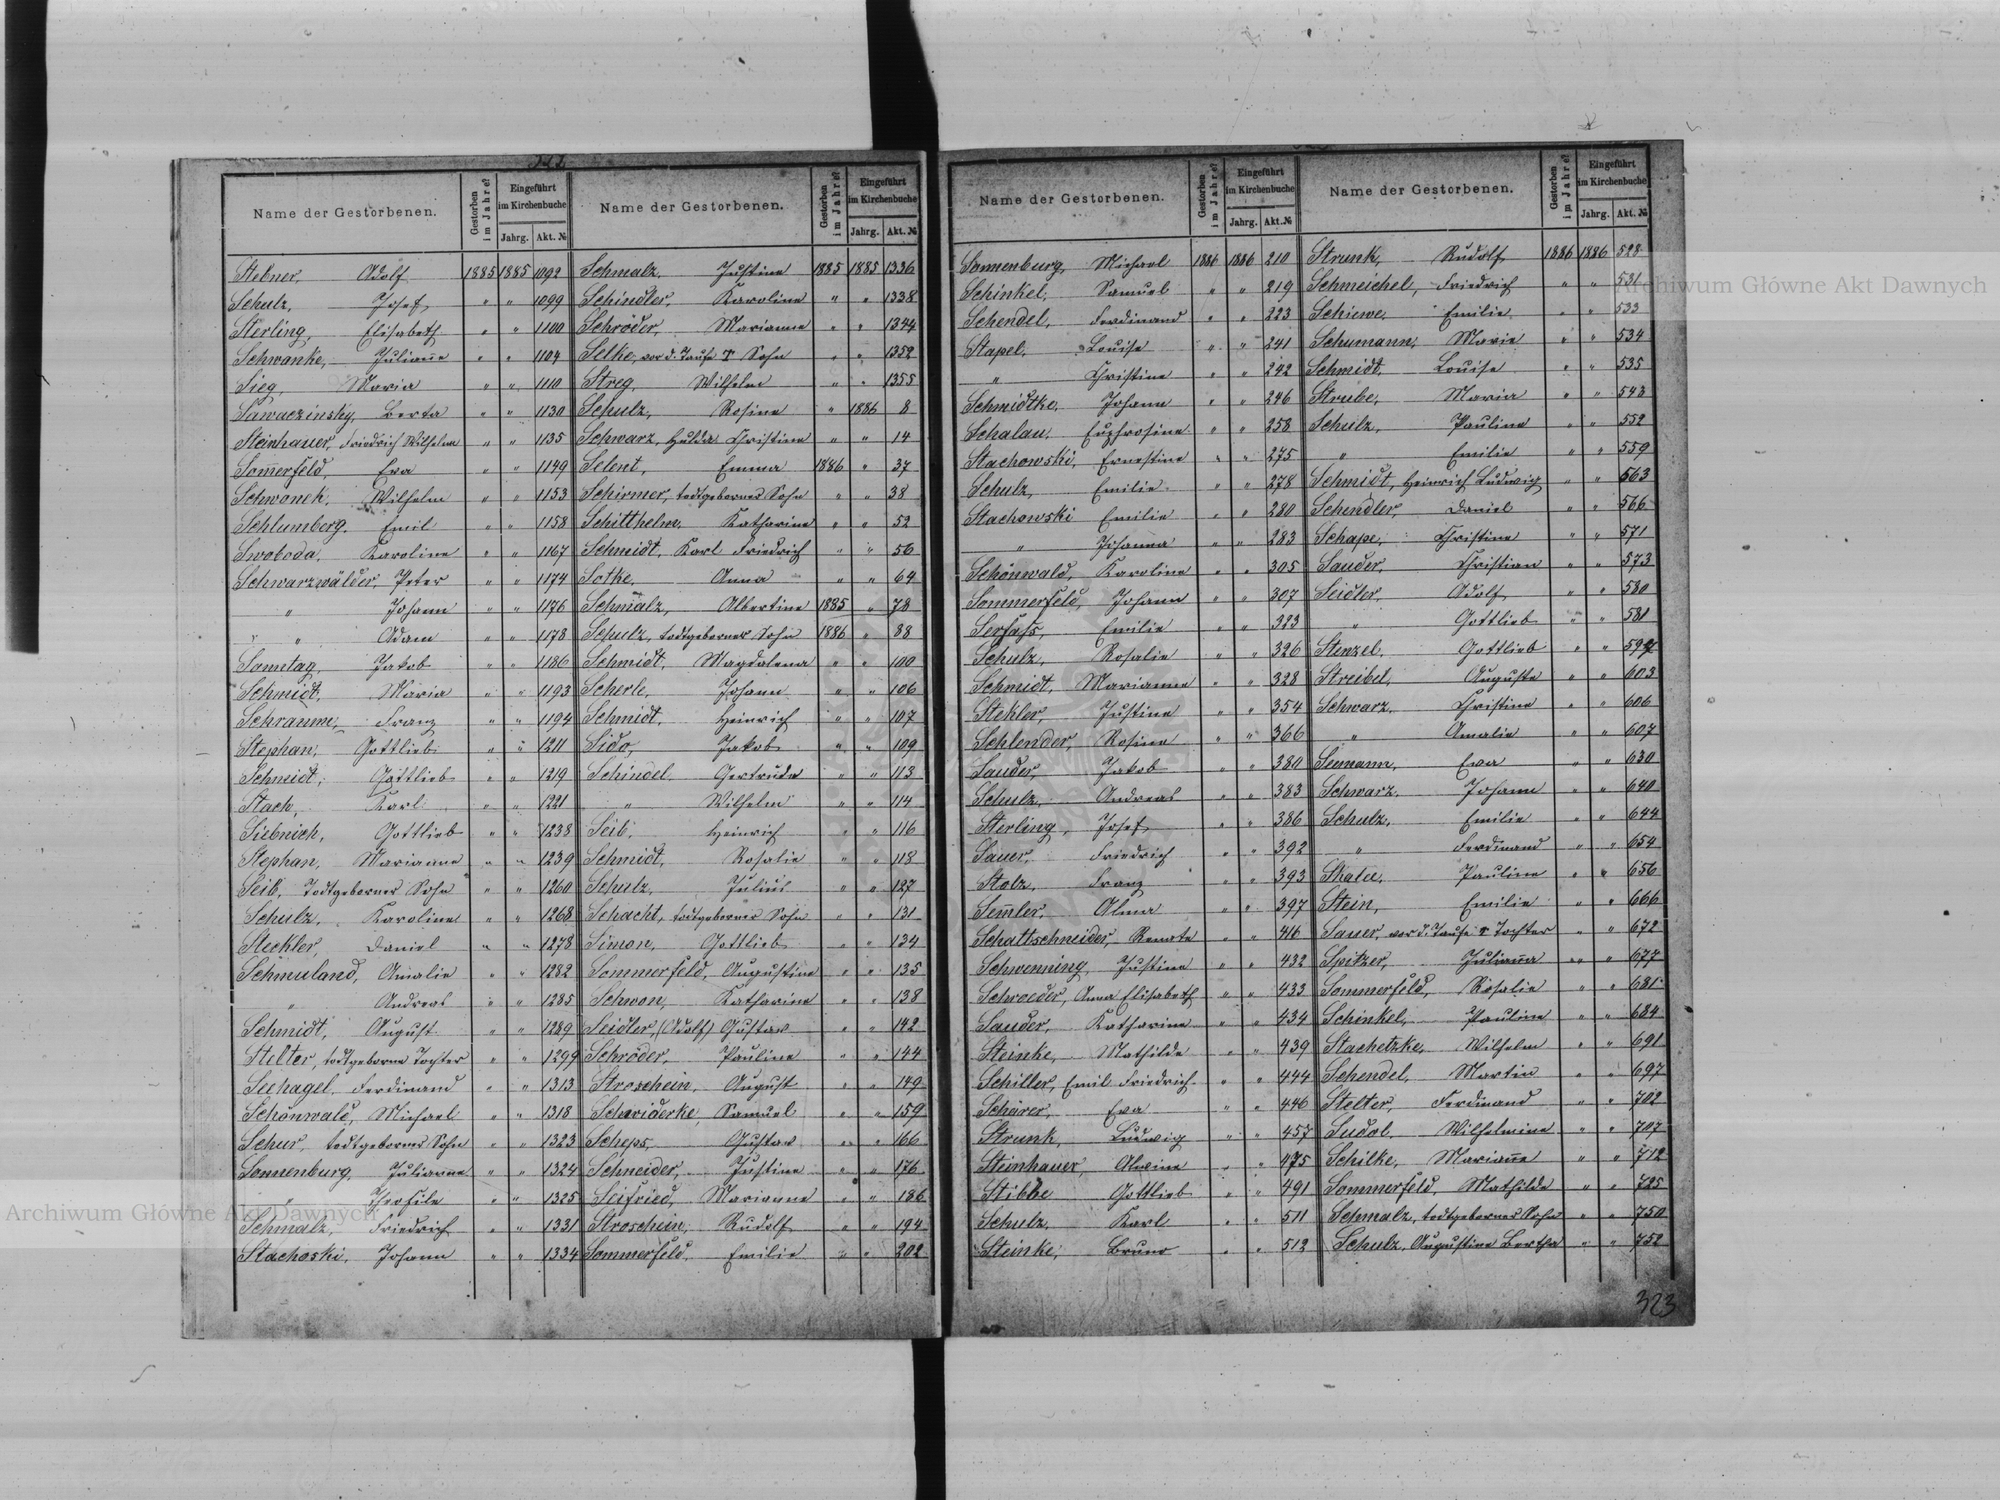 322
Name der Gestorbenen. Gestorben im Jahre? Eingeführt im Kirchenbuche Jahrg. Akt. №
Stebner, Adolf 1885 1885 1092
Schulz, Josef " " 1099
Sterling, Elisabeth " " 1100
Schwanke, Julianne " " 1104
Sieg, Maria " " 1110
Sawaczinsky, Berta " " 1130
Steinhauer, Friedrich Wilhelm " " 1135
Somerfeld, Eva " " 1149
Schwonek, Wilhelm " " 1153
Schlumberg, Emil " " 1158
Swoboda, Karoline " " 1167
Schwarzwälder, Peter " " 1174
" Johann " " 1176
" Adam " " 1178
Sonntag, Jakob " " 1186
Schmidt, Maria " " 1193
Schramm, Franz " " 1194
Stephan, Gottlieb " " 1211
Schmidt, Gottlieb " " 1219
Stach, Karl " " 1221
Siebnich, Gottlieb " " 1238
Stephan, Marianne " " 1239
Seib, Todtgeborner Sohn " " 1260
Schulz, Karoline " " 1268
Steckler, Daniel " " 1278
Schmuland, Amalie " " 1282
" Andreas " " 1285
Schmidt, August " " 1289
Stelter, todtgeborne Tochter " " 1299
Seehagel, Ferdinand " " 1313
Schönwald, Michael " " 1318
Schur, todtgeborner Sohn " " 1323
Sonnenburg, Julianne " " 1324
" " " 1325
Schmalz, Friedrich " " 1331
Stachoski, Johann " " 1334
Name der Gestorbenen. Gestorben im Jahre? Eingeführt im Kirchenbuche Jahrg. Akt. №
Schmalz, Justine 1885 1885 1336
Schindler, Karoline " " 1338
Schröder, Marianne " " 1344
Selke, vor d. Taufe † Sohn " " 1352
Streg, Wilhelm " " 1355
Schulz, Rosine " 1886 8
Schwarz, Hulda Christine " " 14
Selent, Emma 1886 " 37
Schirmer, todtgeborner Sohn " " 38
Schitthelm, Katharine " " 52
Schmidt, Karl Friedrich " " 56
Sotke, Anna " " 64
Schmalz, Albertine 1885 " 78
Schulz, todtgeborner Sohn 1886 " 88
Schmidt, Magdalena " " 100
Scherle, Johann " " 106
Schmidt, Heinrich " " 107
Sido, Jakob " " 109
Schindel Gertrude " " 113
" Wilhelm " " 114
Seib, Heinrich " " 116
Schmidt, Rosalie " " 118
Schulz, Julius " " 127
Schacht, todtgeborner Sohn " " 131
Simon, Gottlieb " " 134
Sommerfeld, Augustine " " 135
Schwon, Katharine " " 138
Seidler, (Adolf) Gustav " " 142
Schröder, Pauline " " 144
Stroschein, August " " 149
Samuel " " 159
Scheps, Gustav " " 166
Schneider, Justine " " 176
Seifried, Marianne " " 186
Stroschein, Rudolf " " 194
Sommerfeld, Emilie " " 202
Name der Gestorbenen. Gestorben im Jahre? Eingeführt im Kirchenbuche Jahrg. Akt. №
Sonnenburg, Michael 1886 1886 210
Schinkel, Samuel " " 219
Schendel, Ferdinand " " 223
Stapel, Louise " " 241
" Christine " " 242
Schmidtke, Johann " " 246
Schalau, Euphrosine " " 258
Stachowski, Ernestine " " 275
Schulz, Emilie " " 278
Stachowski Emilie " " 280
" Johanna " " 283
Schönwald, Karoline " " 305
Sommerfeld, Johann " " 307
Serfass, Emilie " " 323
Schulz, Rosalie " " 326
Schmidt, Marianne " " 328
Stekler, Justine " " 354
Schlender, Rosine " " 366
Sauder, Jakob " " 380
Schulz, Andreas " " 383
Sterling, Josef " " 386
Sauer, Friedrich " " 392
Stolz, Franz " " 393
Semler, Alma " " 397
Schattschneider, Renate " " 416
Schwenning, Justine " " 432
Schroeder, Anna Elisabeth " " 433
Sauder, Katharine " " 434
Steinke, Mathilde " " 439
Schiller, Emil Friedrich " " 444
Schärer, Eva " " 446
Strunk, Ludwig " " 457
Steinhauer, Alwine " " 475
Stibbe Gottlieb " " 491
Schulz, Karl " " 511
Steinke, Bruno " " 512
Name der Gestorbenen. Gestorben im Jahre? Eingeführt im Kirchenbuche Jahrg. Akt. №
Strunk, Rudolf 1886 1886 528
Schmeichel, Friedrich " " 531
Schiewe, Emilie " " 533
Schumann, Marie " " 534
Schmidt, Louise " " 535
Strube, Maria " " 543
Schulz, Pauline " " 552
" Emilie " " 559
Schmidt, Heinrich Ludwig " " 563
Schendler, Daniel " " 566
Schape, Christine " " 571
Sauder, Christian " " 573
Seidler, Adolf " " 580
" Gottlieb " " 581
Stenzel, Gottlieb " "
Streibel, Auguste " " 603
Schwarz, Christine " " 606
" Amalie " " 607
Seemann, Ewa " " 630
Schwarz, Johann " " 640
Schulz, Emilie " " 644
" Ferdinand " " 654
Pauline " " 656
Stein, Emilie " " 666
Sauer, vor d. Taufe † Tochter " " 672
Spitzer, Julianna " " 677
Sommerfeld, Rosalie " " 681
Schinkel, Pauline " " 684
Stachetzke, Wilhelm " " 691
Schendel, Martin " " 697
Stelter, Ferdinand " " 702
Sudol, Wilhelmine " " 707
Schilke, Marianne " " 712
Sommerfeld, Mathilde " " 725
Schmalz, todtgeborner Sohn " " 750
Schulz, Augustine Bertha " " 752
323
Archiwum Główne Akt Dawnych
Archiwum Główne Akt Dawnych